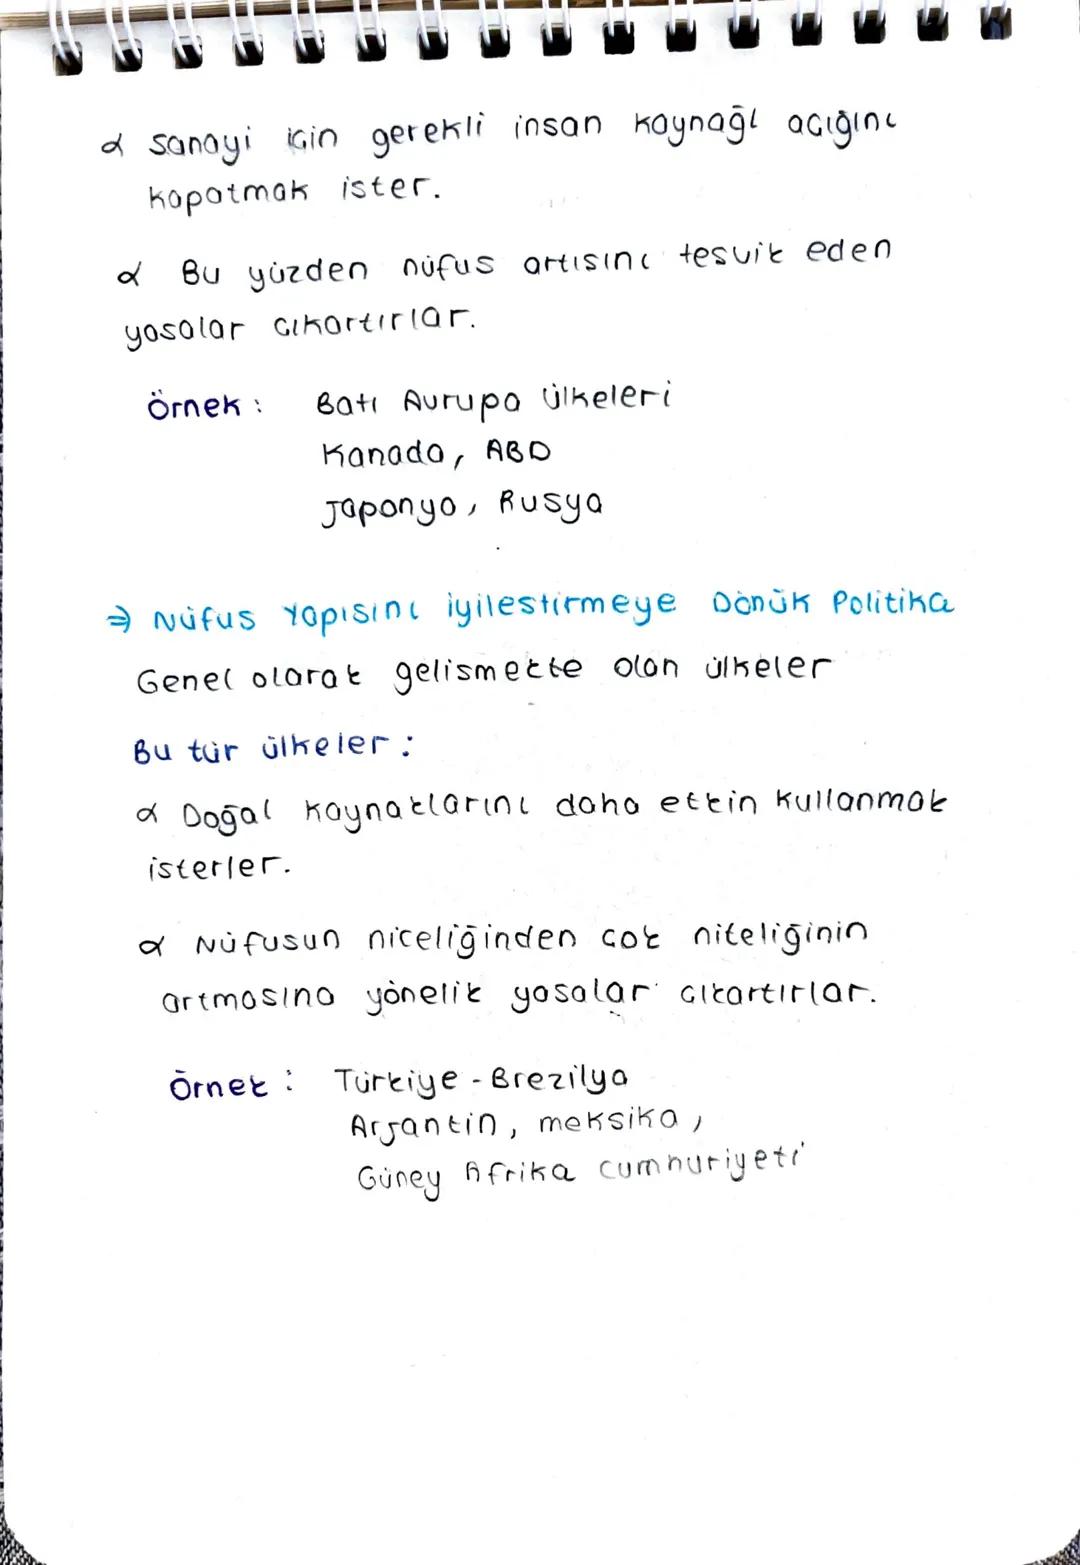 α sanayi için gerekli insan kaynağı açığını
kapatmak ister.
α Bu yüzden nüfus artısını tesvik eden
yasalar cıkartırlar.
Örnek : Batı Avrupa Ülkeleri
Kanada, ABD
Japonya, Rusya
⇒ Nüfus Yapısını iyilestirmeye Dönük Politika
Genel olarak gelismekte olan ülkeler
Bu tür ülkeler :
α Doğal kaynaklarını daha etkin kullanmak
isterler.
α Nüfusun niceliğinden cok niteliğinin
artmasına yönelik yasalar cıkartırlar.
Örnek : Türkiye - Brezilya
Arjantin, meksika,
Güney Afrika cumhuriyeti